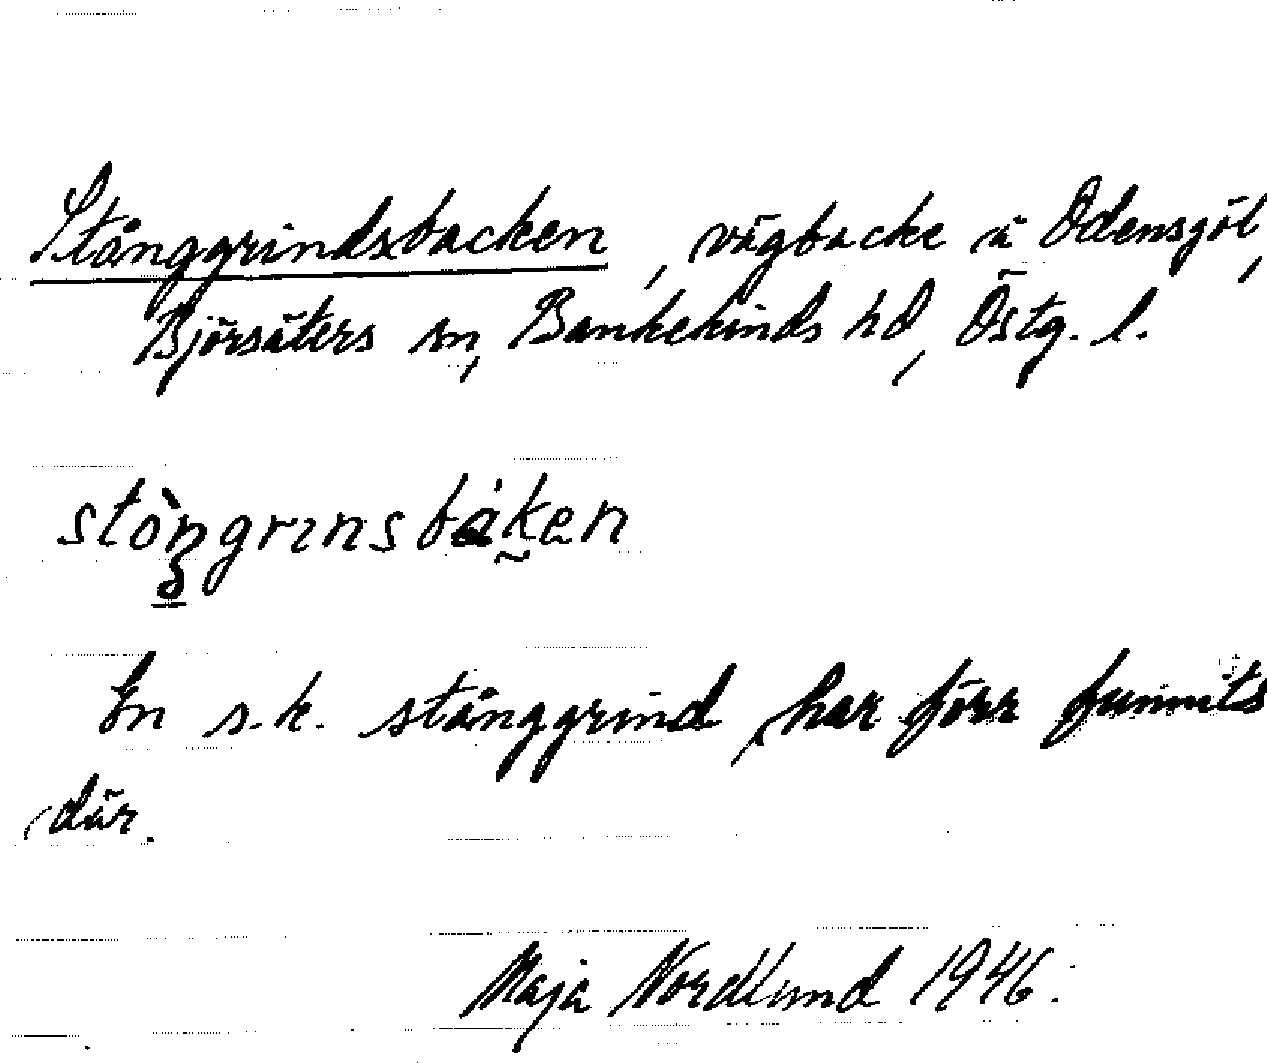 Stånggrindsbacken, vägbacke å Odensgöl,
Björsäters sn, Bankekinds hd, Östg. l.
stòŋgrınsbáken
En s.k. stånggrind har förr funnits
där.
Maja Nordlund 1946.